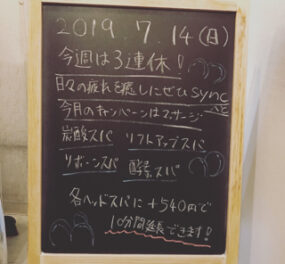 2019.7.14(日)
今週は3連休！
日々の疲れを癒しにぜひsyncへ
今月のキャンペーンはマッサージ
炭酸スパ リフトアップスパ
リボーンスパ 酵素スパ
各ヘッドスパに+540円で
10分間延長できます！